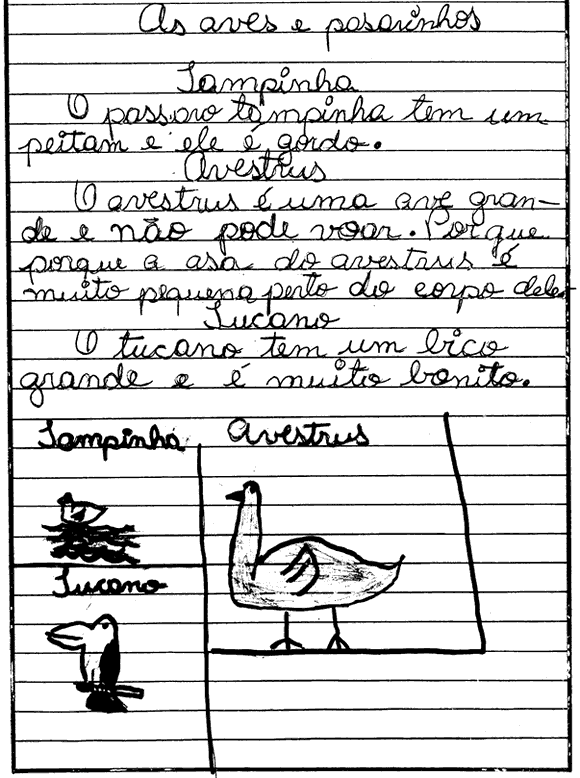 As aves e pasarinhos
Tampinha
O passaro tampinha tem um
peitam e ele é gordo.
Avestrus
O avestrus é uma ave gran-
de e não pode voar. Porque
porque a asa do avestrus é
muito pequena perto do corpo dele.
Tucano
O tucano tem um bico
grande e é muito bonito.
Tampinha
Avestrus
Tucano